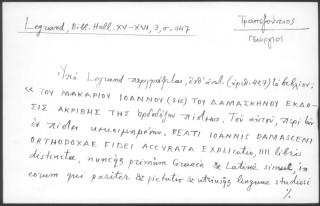 Legrand, Bibl. Hell. XV-XVI, 3, σ. 447
Τραπεζούντιος
Γεώργιος
Ὑπὸ Legrand περιγράφεται, ἀριθ. 427) τὸ βιβλίον;
« ΤΟΥ ΜΑΚΑΡΙΟΥ ΙΩΑΝΝΟΥ (sic) ΤΟΥ ΔΑΜΑΣΚΗΝΟΥ ΕΚΔΟ-
ΣΙΣ ΑΚΡΙΒΗΣ ΤΗΣ ὀρθοδόξου πίστεως. Τοῦ αὐτοῦ, περὶ τῶν
ἐν πίστει κεκοιμημένων. BEATI IOANNIS DAMASCENI
ORTHODOXAE FIDEI ACCVRATA EXPLICATIO, IIII libris
distincta, nuncq́ primùm Graecè & Latinè simul, in
eorum qui pariter & pietatis & utriusq́ linguae studiosi
%